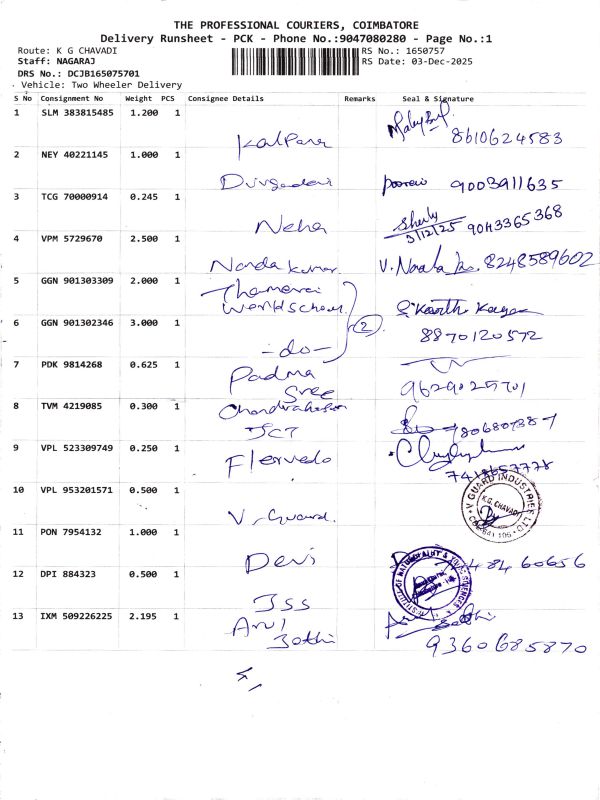 THE PROFESSIONAL COURIERS, COIMBATORE
Delivery Runsheet - PCK - Phone No.:9047080280 - Page No.:1
Route: K G CHAVADI
RS No.: 1650757
Staff: NAGARAJ
RS Date: 03-Dec-2025
DRS No.: DCJB165075701
Vehicle: Two Wheeler Delivery
S No Consignment No Weight PCS Consignee Details Remarks Seal & Signature
1 SLM 383815485 1.200 1
Kalpana 8610624583
2 NEY 40221145 1.000 1
9003911635
3 TCG 70000914 0.245 1
Neha Sherly
3/12/25 9043365368
4 VPM 5729670 2.500 1
Nanda kumar. 8248589602
5 GGN 901303309 2.000 1
Thamarai
World School
6 GGN 901302346 3.000 1
2
8870120572
-do-
7 PDK 9814268 0.625 1
Padma
Sree 9629025701
8 TVM 4219085 0.300 1
JCT
9 VPL 523309749 0.250 1
10 VPL 953201571 0.500 1
V-Guard.
V GUARD INDUSTRIES LTD
K.G. CHAVADI
11 PON 7954132 1.000 1
Devi 60656
12 DPI 884323 0.500 1
JSS
13 IXM 509226225 2.195 1
Arul
Jothi
9360685870